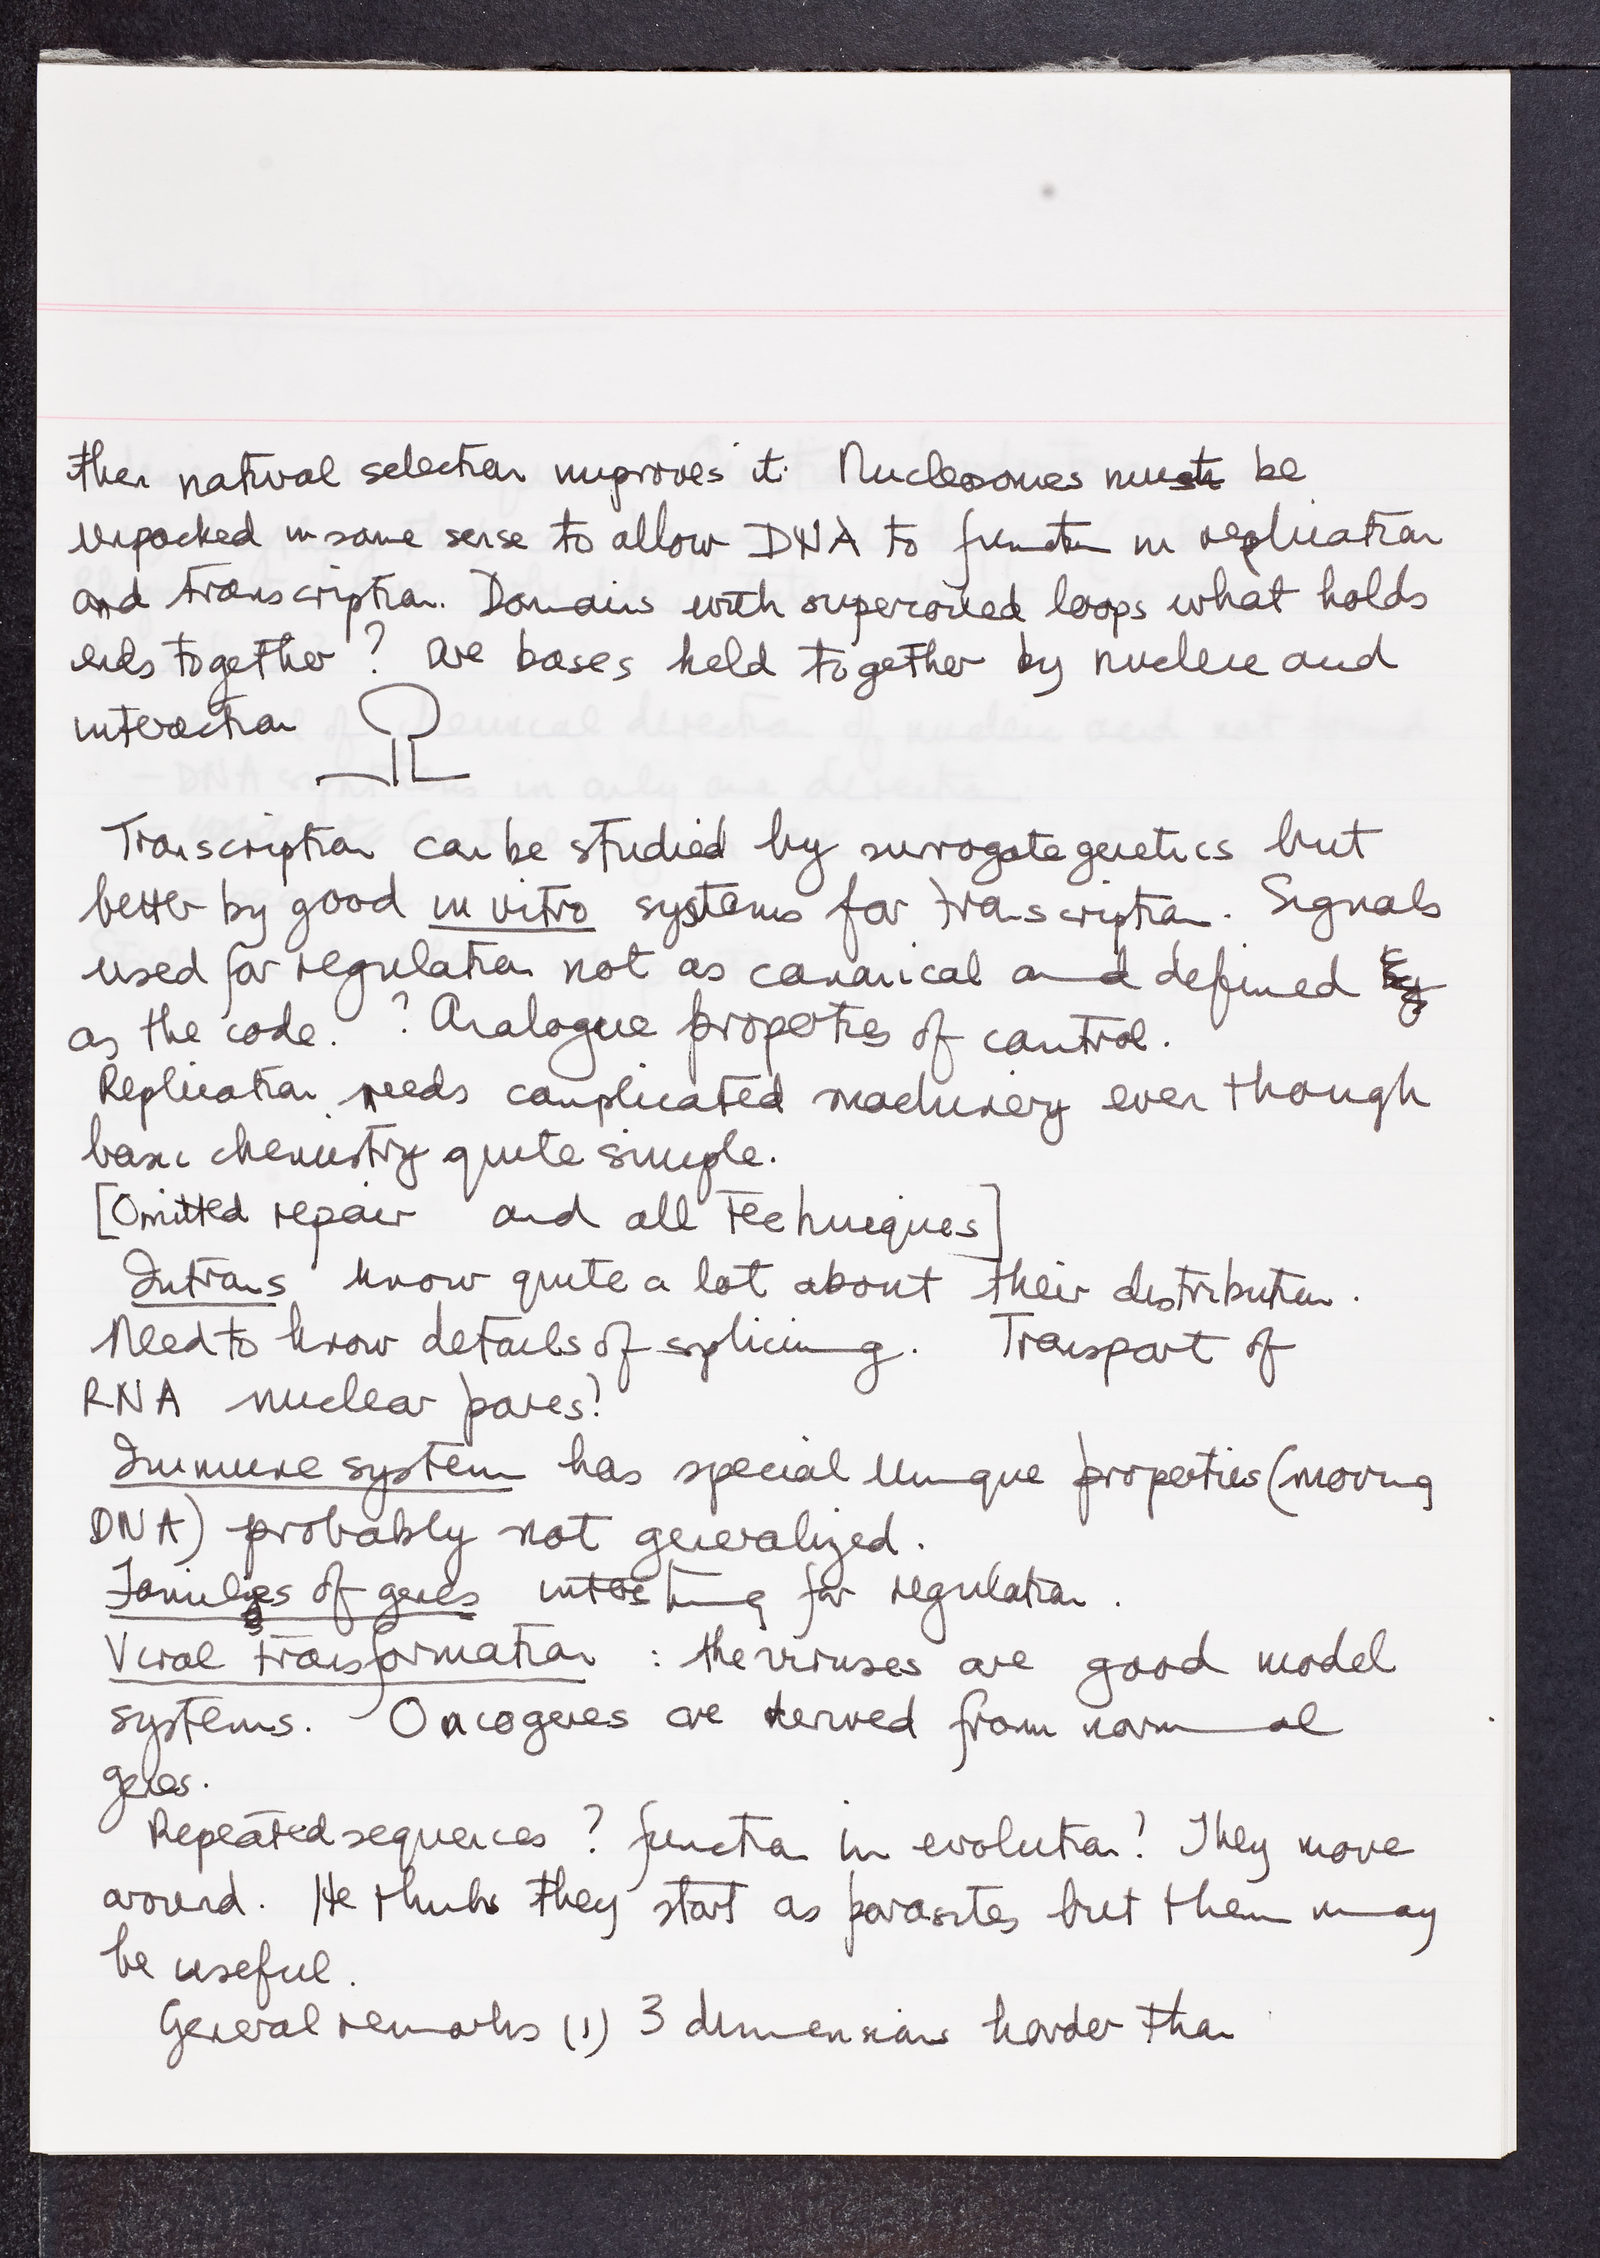 then natural selection improves it. Nucleosomes must be
unpacked in some sense to allow DNA to function in replication
and transcription. Domains with supercoiled loops what holds
ends together? are bases held together by nucleic acid
interaction
Transcription can be studied by surrogate genetics but
better by good in vitro systems for transcription. Signals
used for regulation not as canonical and defined
as the code. ? Analogue properties of control.
Replication needs complicated machinery even though
basic chemistry quite simple.
[Omitted repair and all techniques]
Introns know quite a lot about their distribution.
Need to know details of splicing. Transport of
RNA nuclear pores?
Immune system has special unique properties (moving
DNA) probably not generalized.
Families of genes interesting for regulation.
Viral transformation : the viruses are good model
systems. Oncogenes are derived from normal
genes.
Repeated sequences? function in evolution? They move
around. He thinks they start as parasites but then may
be useful.
General remarks (1) 3 dimensions harder than